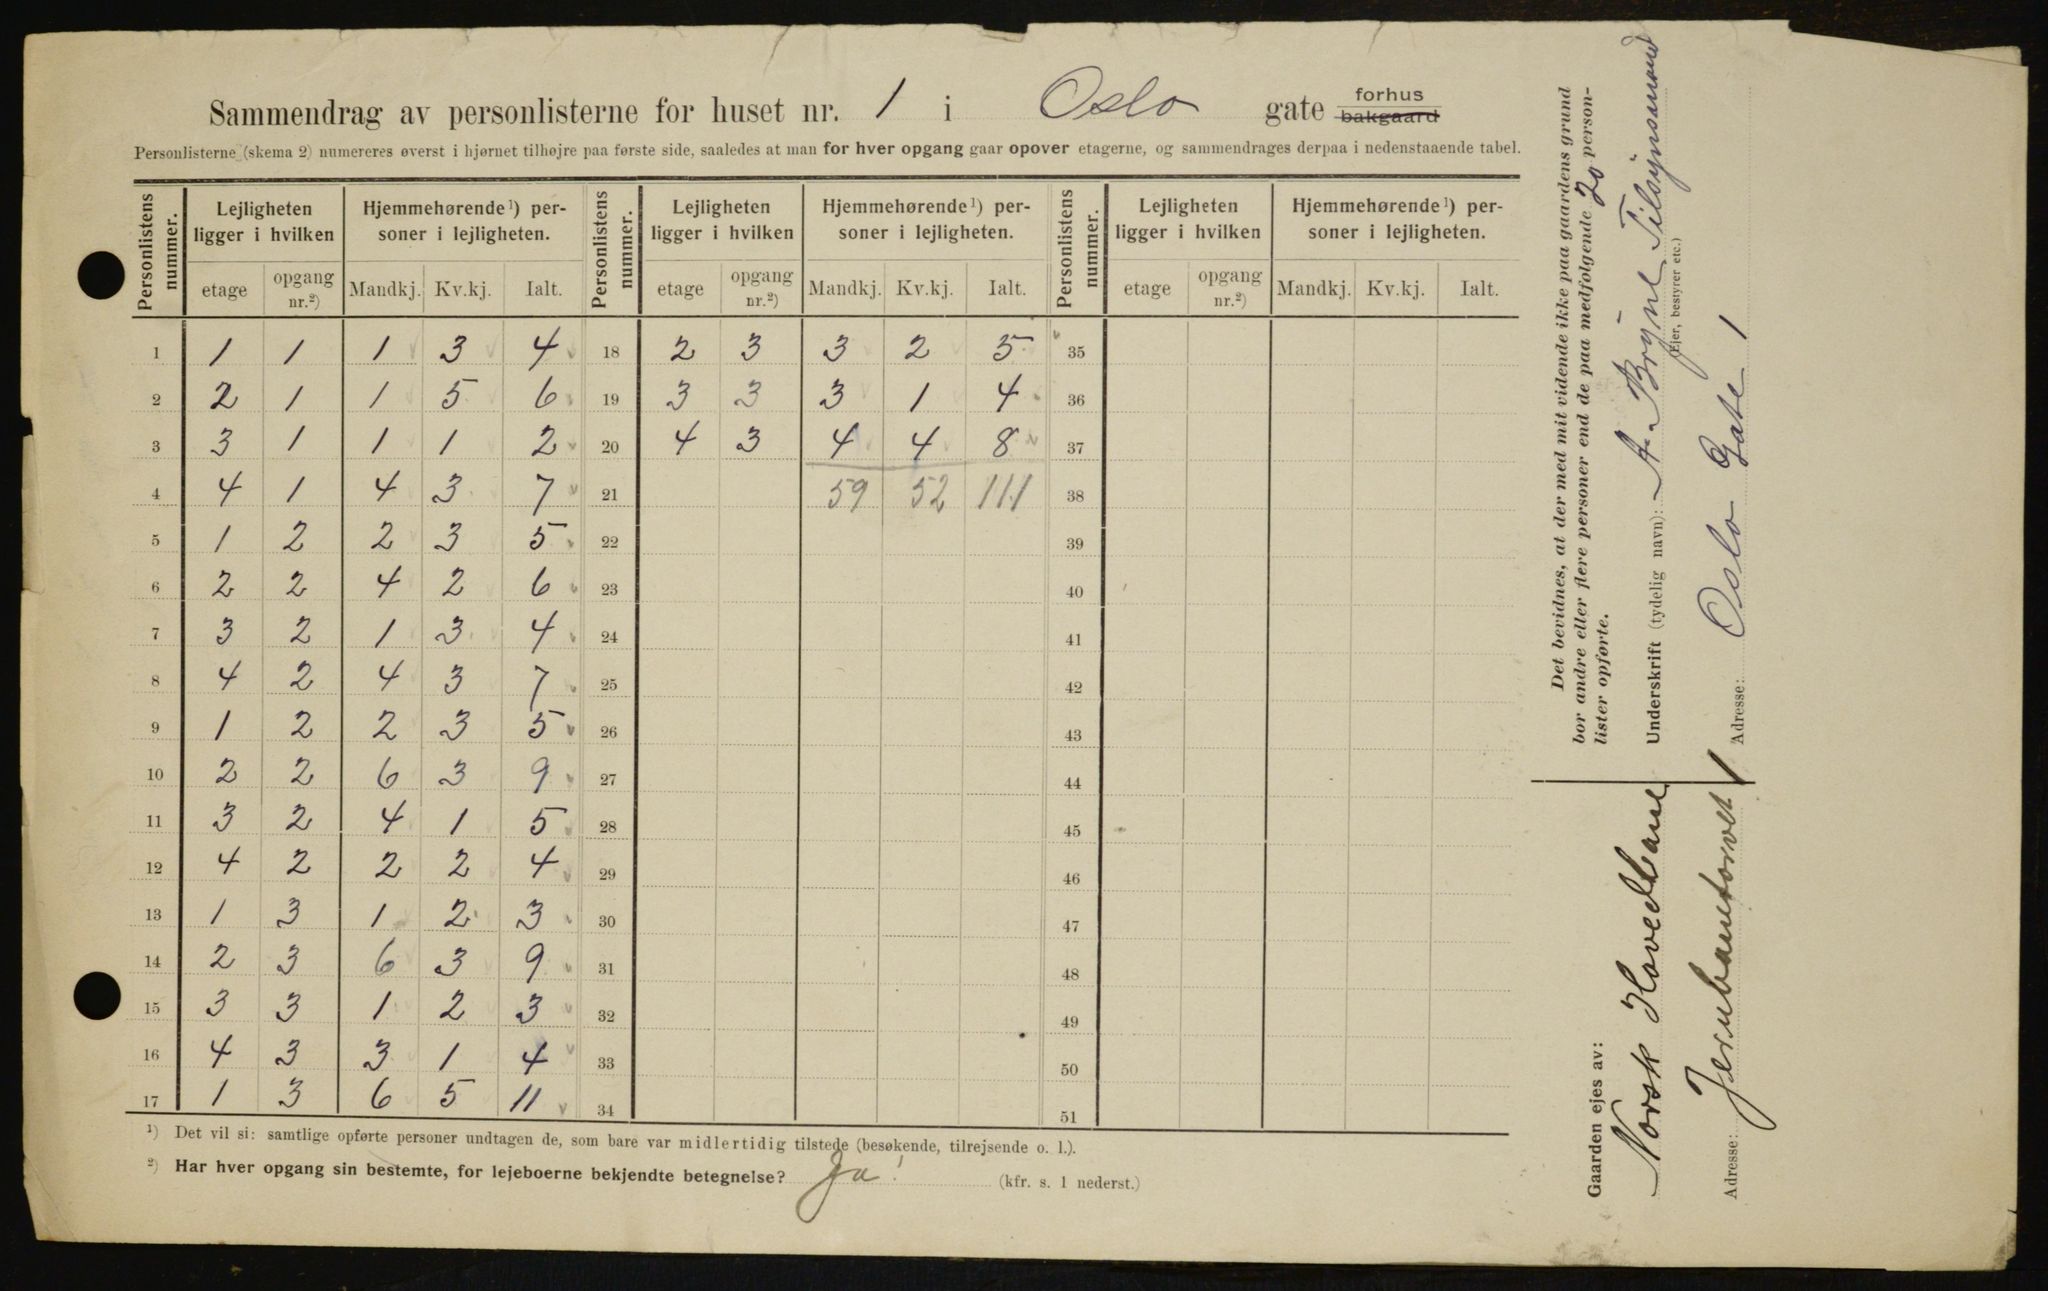 Sammendrag av personlisterne for huset nr. 1 i Oslo gate forhus bakgaard
Personlisterne (skema 2) numereres øverst i hjørnet tilhøjre paa første side, saaledes at man for hver opgang gaar opover etagerne, og sammendrages derpaa i nedenstaaende tabel.
Personlistens nummer. Lejligheten ligger i hvilken Hjemmehørende¹) personer i lejligheten. Personlistens nummer. Lejligheten ligger i hvilken Hjemmehørende¹) personer i lejligheten. Personlistens nummer. Lejligheten ligger i hvilken Hjemmehørende¹) personer i lejligheten.
etage opgang nr.²) Mandkj. Kv.kj. Ialt. etage opgang nr.²) Mandkj. Kv.kj. Ialt. etage opgang nr.²) Mandkj. Kv.kj. Ialt.
1 1 1 1 3 4 18 2 3 3 2 5 35
2 2 1 1 5 6 19 3 3 3 1 4 36
3 3 1 1 1 2 20 4 3 4 4 8 37
4 4 1 4 3 7 21 59 52 111 38
5 1 2 2 3 5 22 39
6 2 2 4 2 6 23 40
7 3 2 1 3 4 24 41
8 4 2 4 3 7 25 42
9 1 2 2 3 5 26 43
10 2 2 6 3 9 27 44
11 3 2 4 1 5 28 45
12 4 2 2 2 4 29 46
13 1 3 1 2 3 30 47
14 2 3 6 3 9 31 48
15 3 3 1 2 3 32 49
16 4 3 3 1 4 33 50
17 1 3 6 5 11 34 51
¹) Det vil si: samtlige opførte personer undtagen de, som bare var midlertidig tilstede (besøkende, tilrejsende o. l.).
²) Har hver opgang sin bestemte, for lejeboerne bekjendte betegnelse? Ja! (kfr. s. 1 nederst.)
Det bevidnes, at der med mit vidende ikke paa gaardens grund
bor andre eller flere personer end de paa medfølgende 20 person-
lister opførte.
Underskrift (tydelig navn): A. Bryne Tilsynsmand
(Ejer, bestyrer etc.)
Adresse: Oslo Gate 1
Gaarden ejes av:
Norsk Hovedbane
Adresse: Jernbanetorvet 1